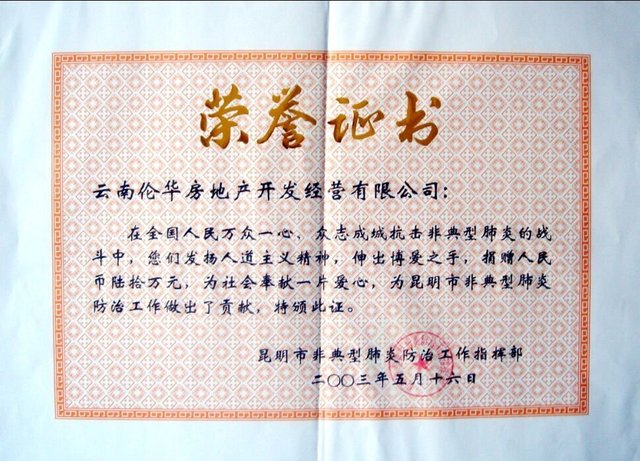 荣誉证书
云南伦华房地产开发经营有限公司：
在全国人民万众一心、众志成城抗击非典型肺炎的战
斗中，您们发扬人道主义精神，伸出博爱之手，捐赠人民
币陆拾万元，为社会奉献一片爱心，为昆明市非典型肺炎
防治工作做出了贡献，特颁此证。
昆明市非典型肺炎防治工作指挥部
二〇〇三年五月十六日